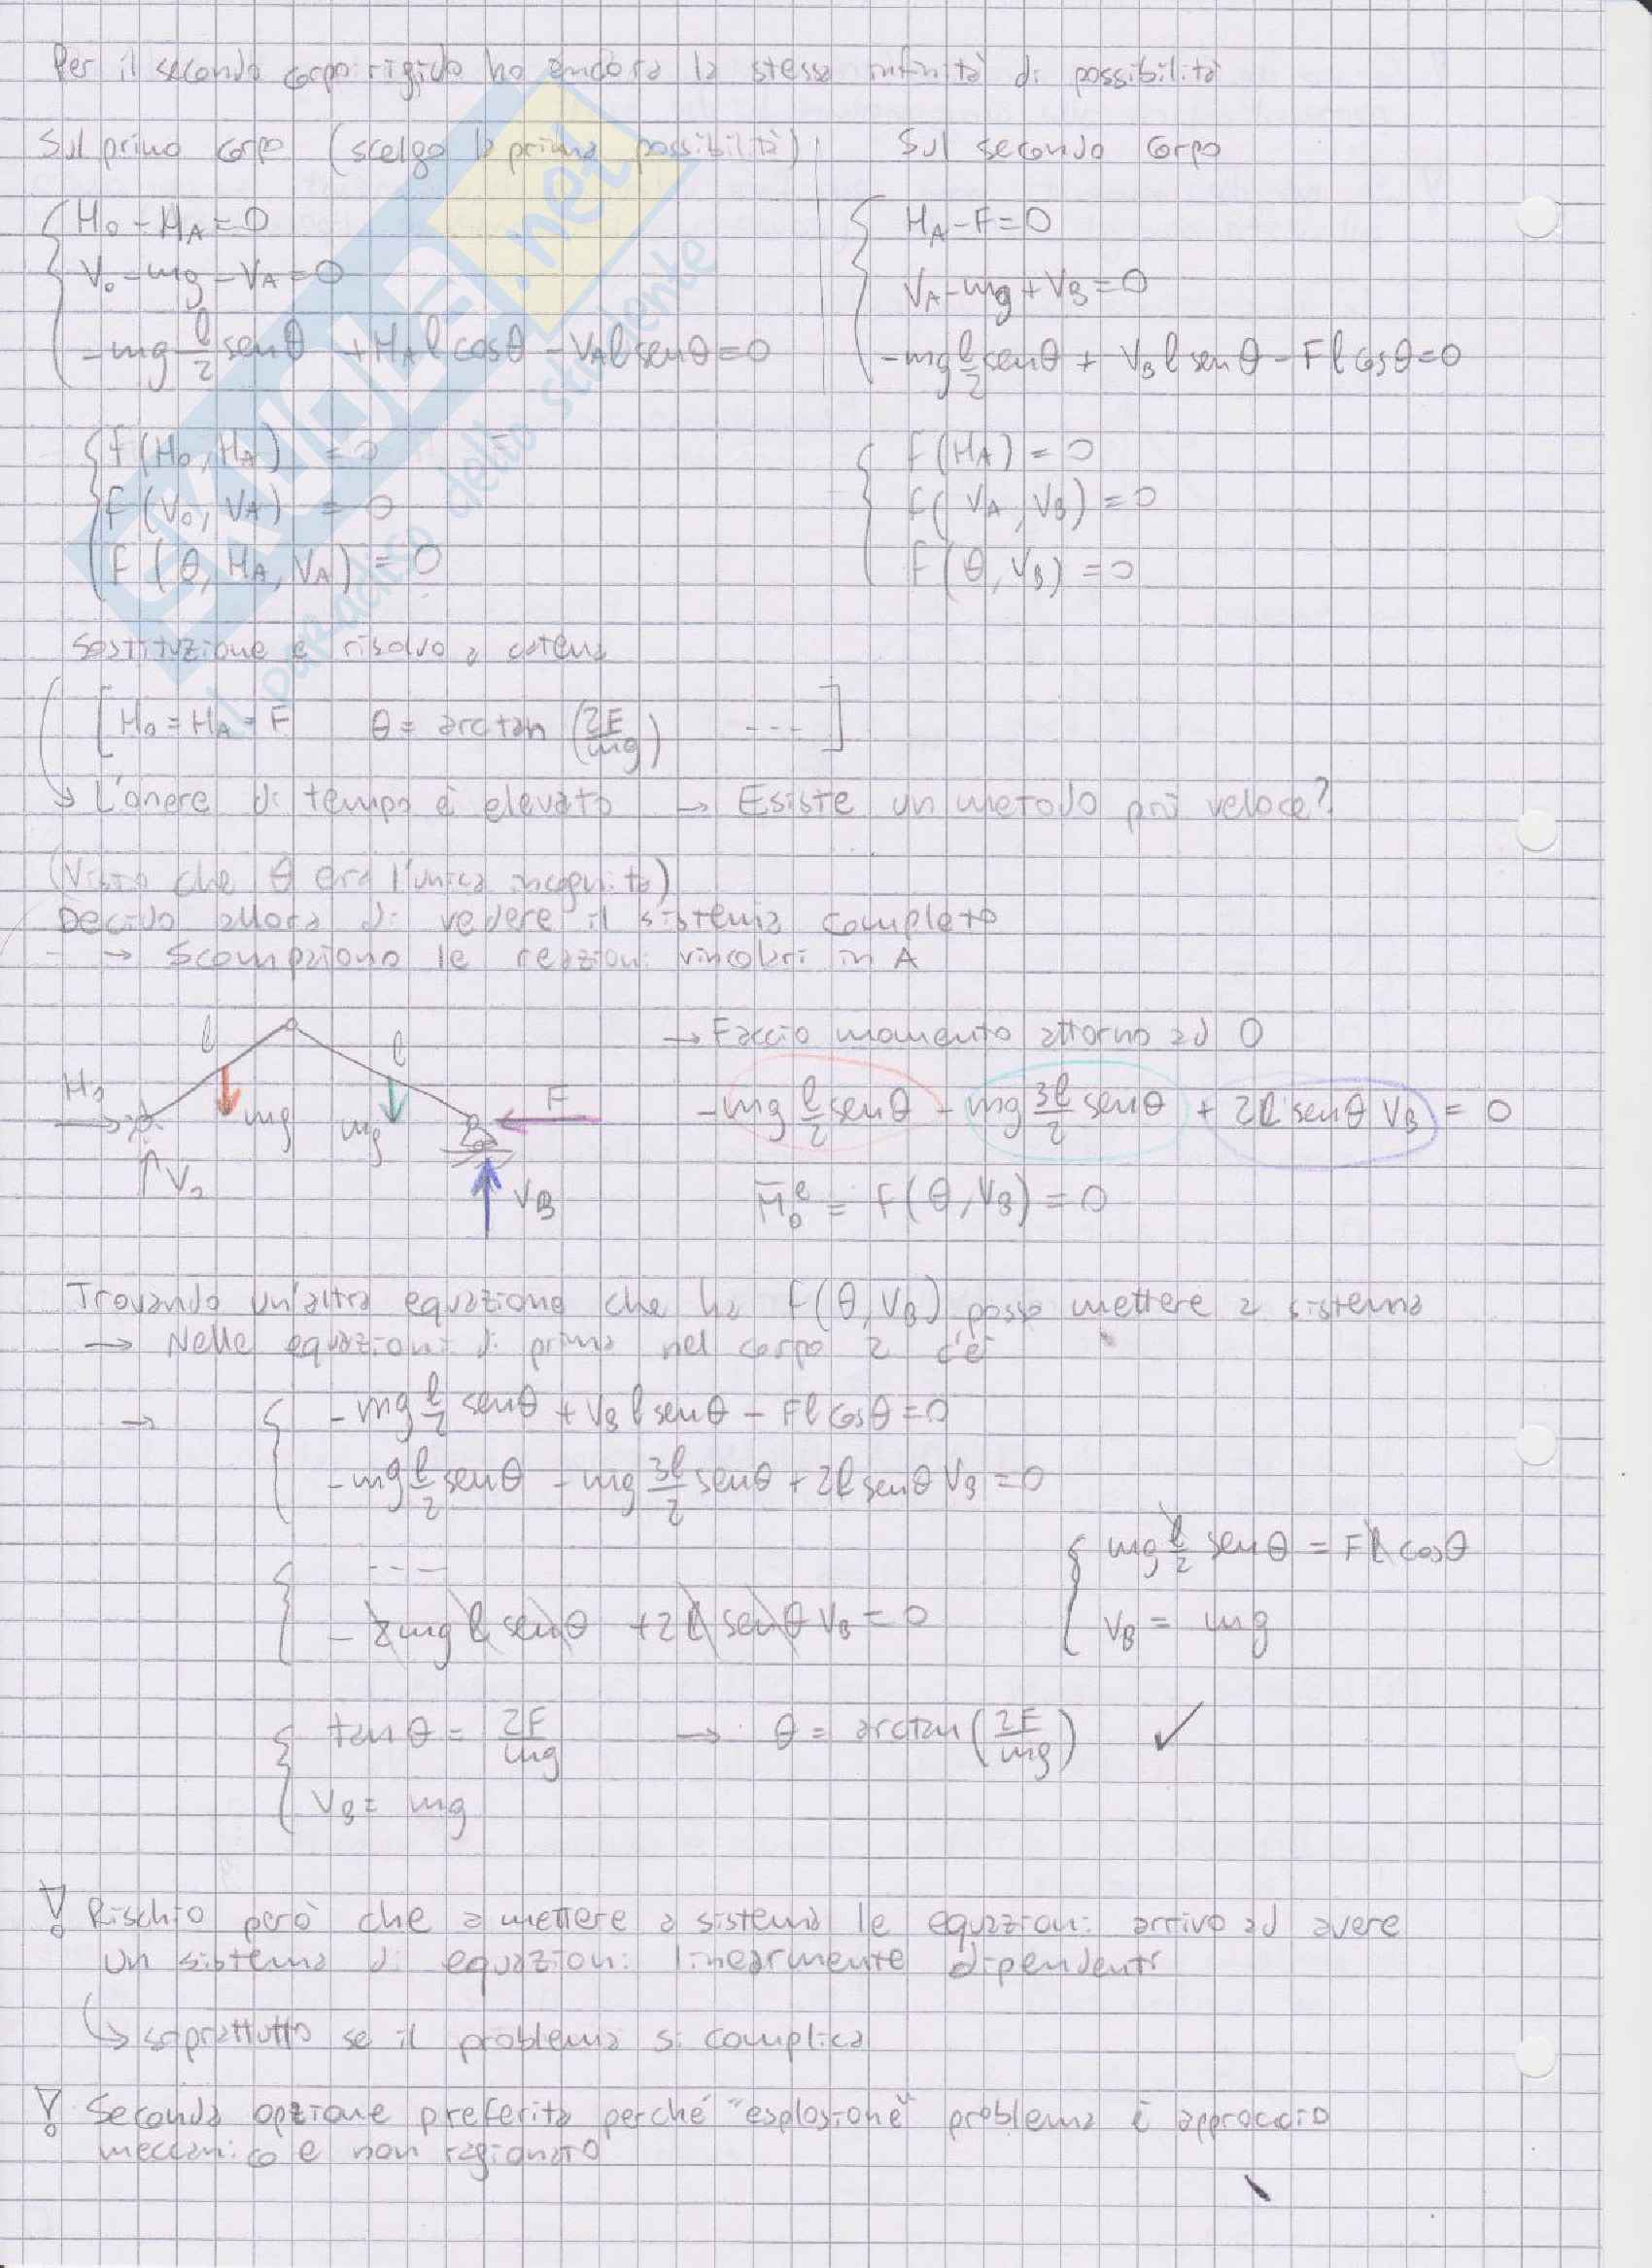 Per il secondo corpo rigido ho ancora la stessa infinità di possibilità
Sul primo corpo (scelgo la prima possibilità)
H₀ - H_A = 0
V₀ - mg - V_A = 0
-mg l/2 senθ + H_A l cosθ - V_A l senθ = 0
Sul secondo corpo
H_A - F = 0
V_A - mg + V_B = 0
-mg l/2 senθ + V_B l senθ - F l cosθ = 0
F(H₀, H_A) = 0
F(V₀, V_A) = 0
F(θ, H_A, V_A) = 0
F(H_A) = 0
F(V_A, V_B) = 0
F(θ, V_B) = 0
Sostituzione e risolvo a catena
[H₀ = H_A = F θ = arctan (2F/mg) ---]
↳ L'onere di tempo è elevato → Esiste un metodo più veloce?
(Visto che θ era l'unica incognita)
Decido allora di vedere il sistema completo
→ Scompaiono le reazioni vincolari in A
l
l
H₀
mg
mg
F
V₀
V_B
→ Faccio momento attorno ad O
-mg l/2 senθ - mg 3l/2 senθ + 2l senθ V_B = 0
M₀ᵉ = F(θ, V_B) = 0
Trovando un'altra equazione che ha f(θ, V_B) posso mettere a sistema
→ Nelle equazioni di prima nel corpo 2 c'è
→ -mg l/2 senθ + V_B l senθ - F l cosθ = 0
-mg l/2 senθ - mg 3l/2 senθ + 2l senθ V_B = 0
---
-2mg l senθ + 2l senθ V_B = 0
mg l/2 senθ = F l cosθ
V_B = mg
tanθ = 2F/mg → θ = arctan(2F/mg) ✓
V_B = mg
Rischio però che a mettere a sistema le equazioni arrivo ad avere
un sistema di equazioni linearmente dipendenti
↳ soprattutto se il problema si complica
Seconda opzione preferita perché "esplosione" problema è approccio
meccanico e non ragionato
SKUOLA.net
il paradiso dello studente